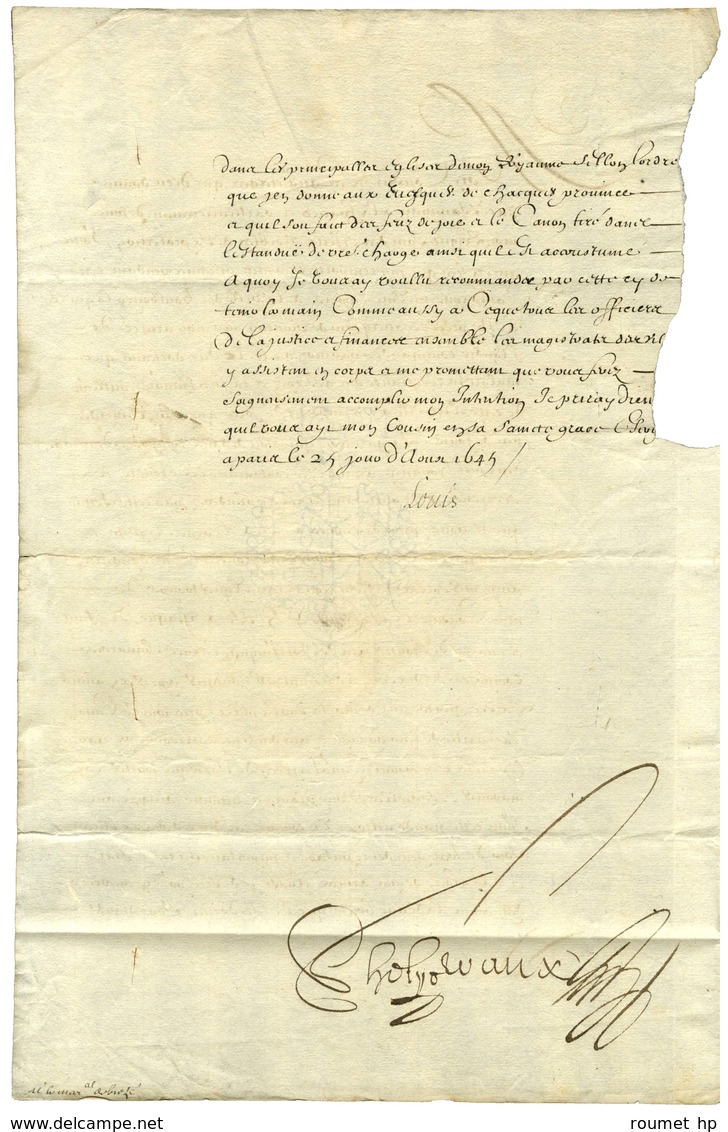 dans les principalles eglises de mon Royaume sellon lordre
que jen donne aux Evesques de chacques province
et quil soit faict des feuz de joie et le Canon tiré dans
lestanduë de vre charge ainsi quil est accoustumé
A quoy Je vous ay voullu recommander par cette cy de
tenir la main Comme aussy a Ceque tous les officiers
de la justice et finances ensemble les magistrats des vil
y assistent en corps et me promettant que vous ferez
soigneusement accomplir mon Intention Je priray Dieu
quil vous ayt mon Cousin en sa saincte grace Escript
a paris le 25 jour d'Aoust 1645
Louis
Phelypeaux
M. le mar.al de brezé
roumet hp